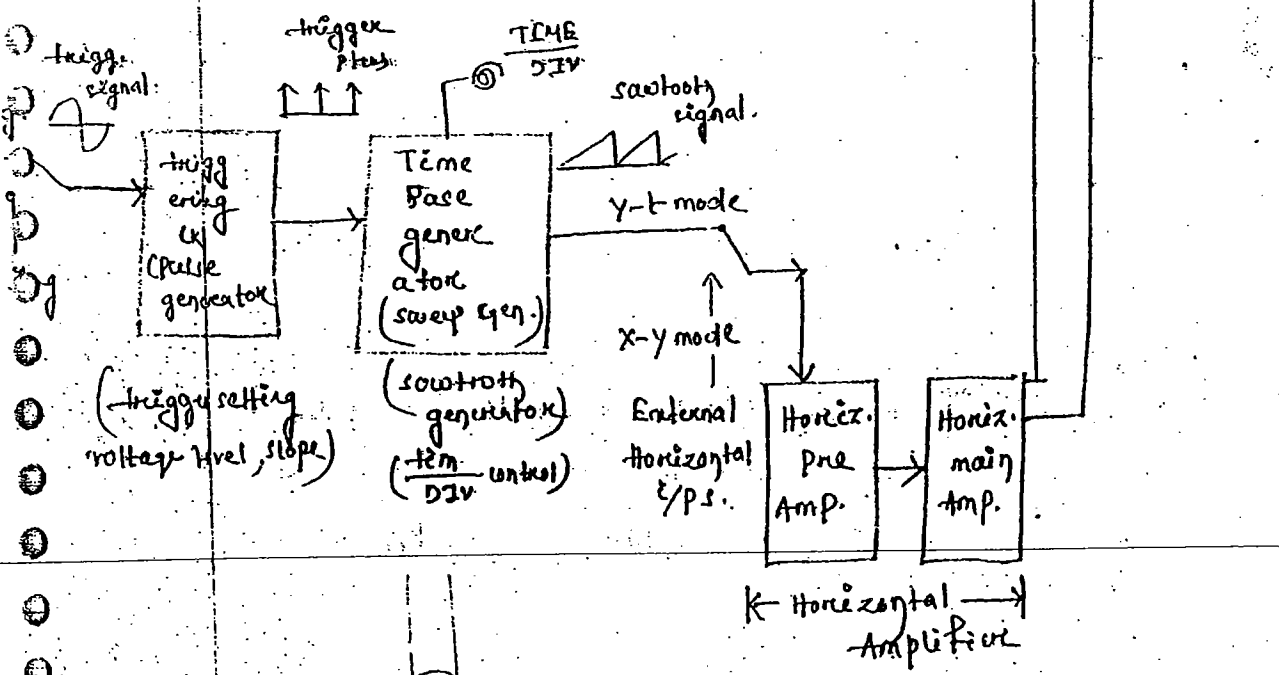 trigger
TIME
signal.
DIV
sawtooth
signal.
trigg
ering
ck
(Pulse
generator
Time
Base
gener
ator
(sweep gen.)
y-t mode
X-Y mode
(trigger setting
voltage level, slope)
(sawtooth
generator)
(tim
DIV control)
External
Horizontal
i/ps.
Horiz.
Pre
Amp.
Horiz.
main
Amp.
Horizontal
Amplifier